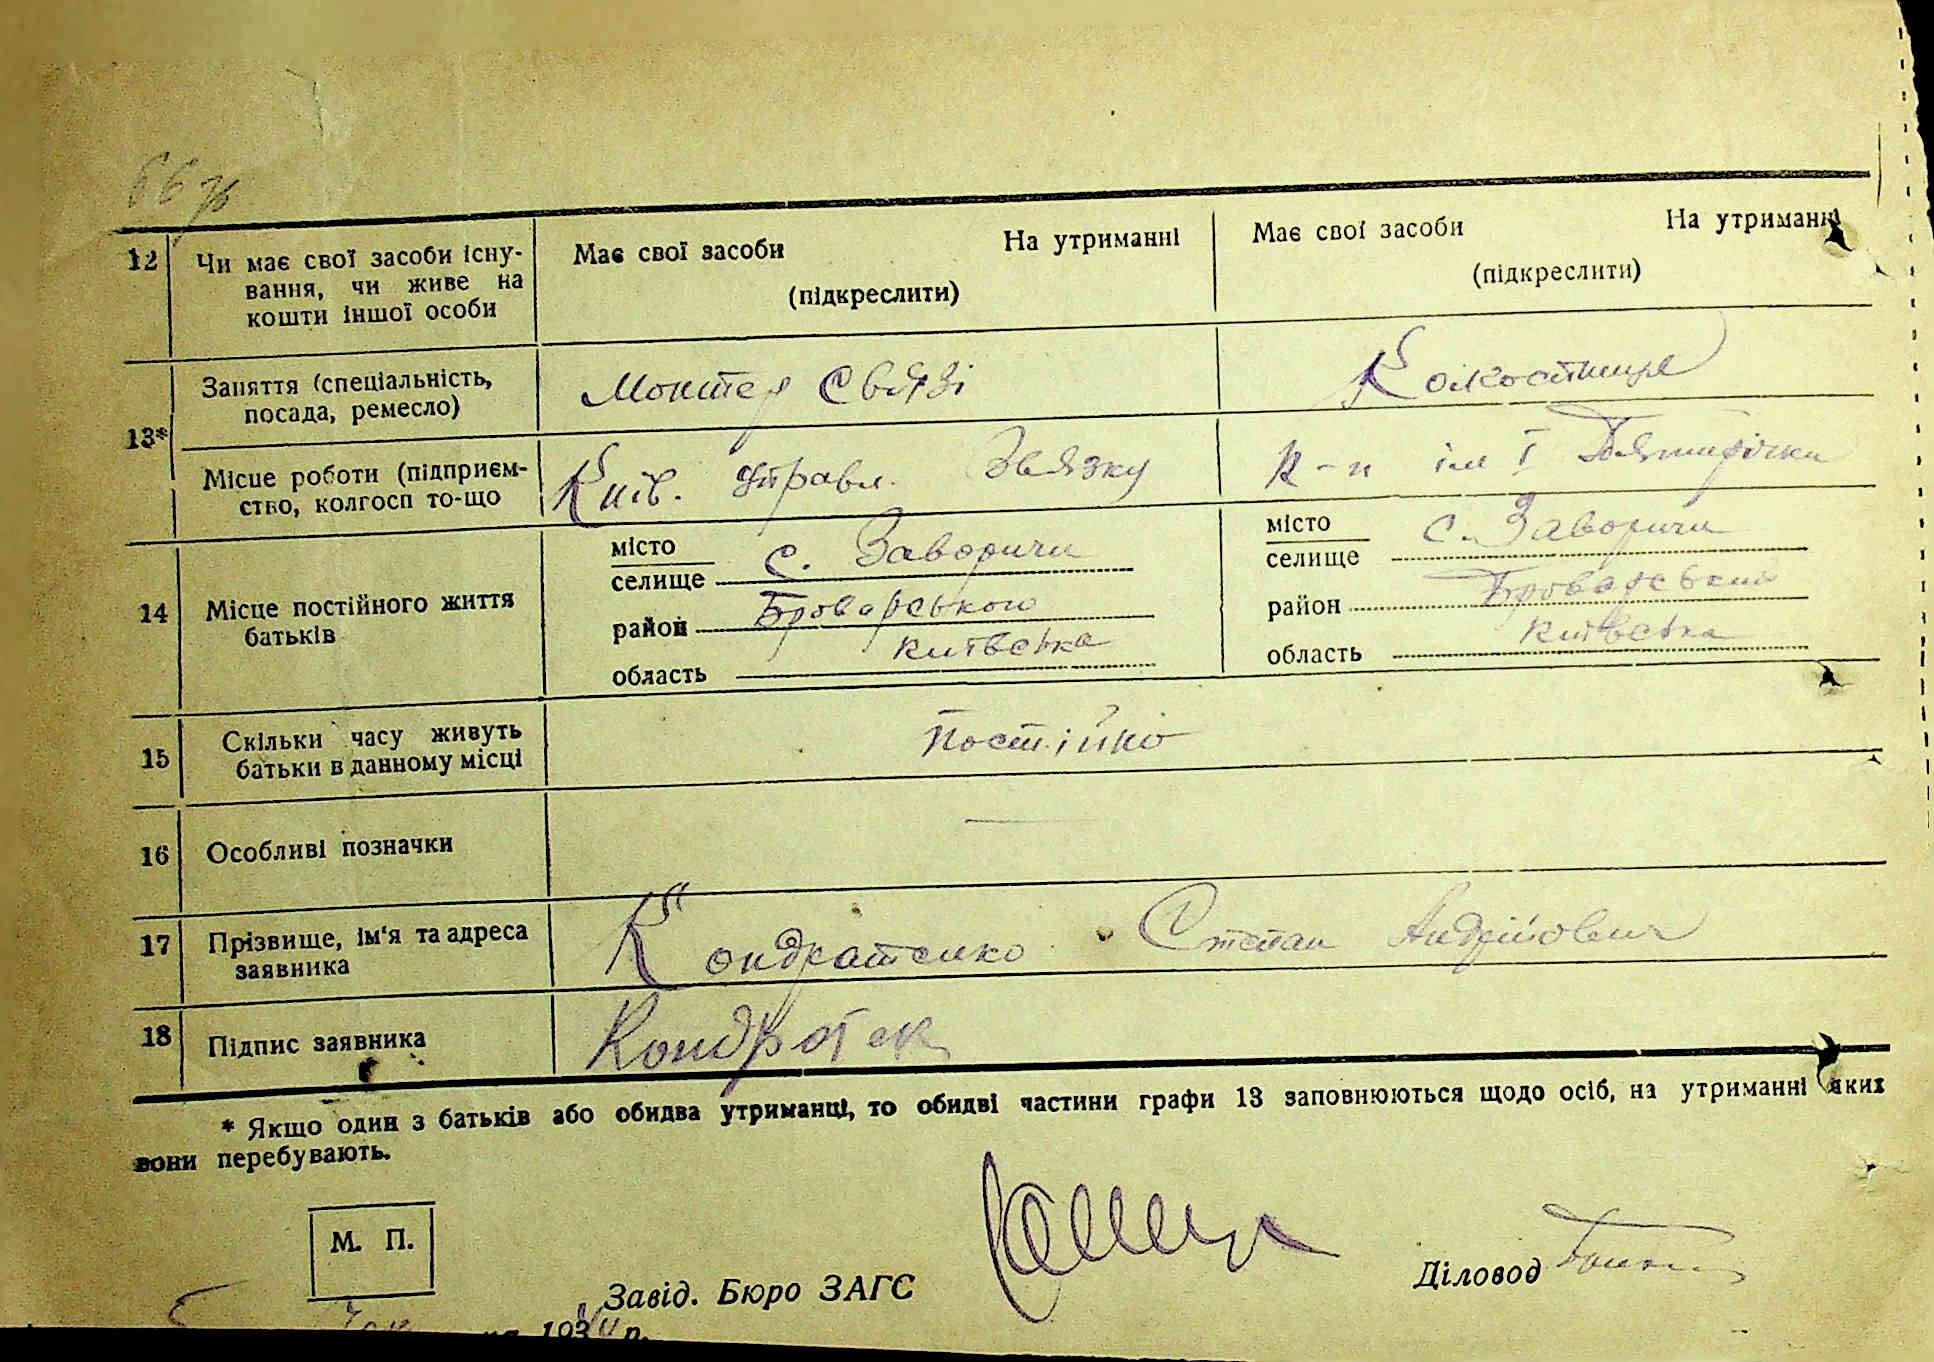 12 Чи має свої засоби існу- Має свої засоби На утриманні Має свої засоби На утриманні
вання, чи живе на (підкреслити) (підкреслити)
кошти іншої особи
13* Заняття (спеціальність, Монтер Связі Колгоспниця
посада, ремесло)
Місце роботи (підприєм- Київ. управл. Звязку к-п ім І П'ятирічки
ство, колгосп то-що
14 Місце постійного життя
батьків
місто с. Заворичи місто с. Заворичи
селище селище
район Броварського район Броварський
область Київська область Київська
15 Скільки часу живуть Постійно
батьки в данному місці
16 Особливі позначки —
17 Прізвище, ім'я та адреса Кондратенко Степан Андрійович
заявника
18 Підпис заявника Кондротек
* Якщо один з батьків або обидва утриманці, то обидві частини графи 13 заповнюються щодо осіб, на утриманні яких
вони перебувають.
М. П.
Завід. Бюро ЗАГС Діловод